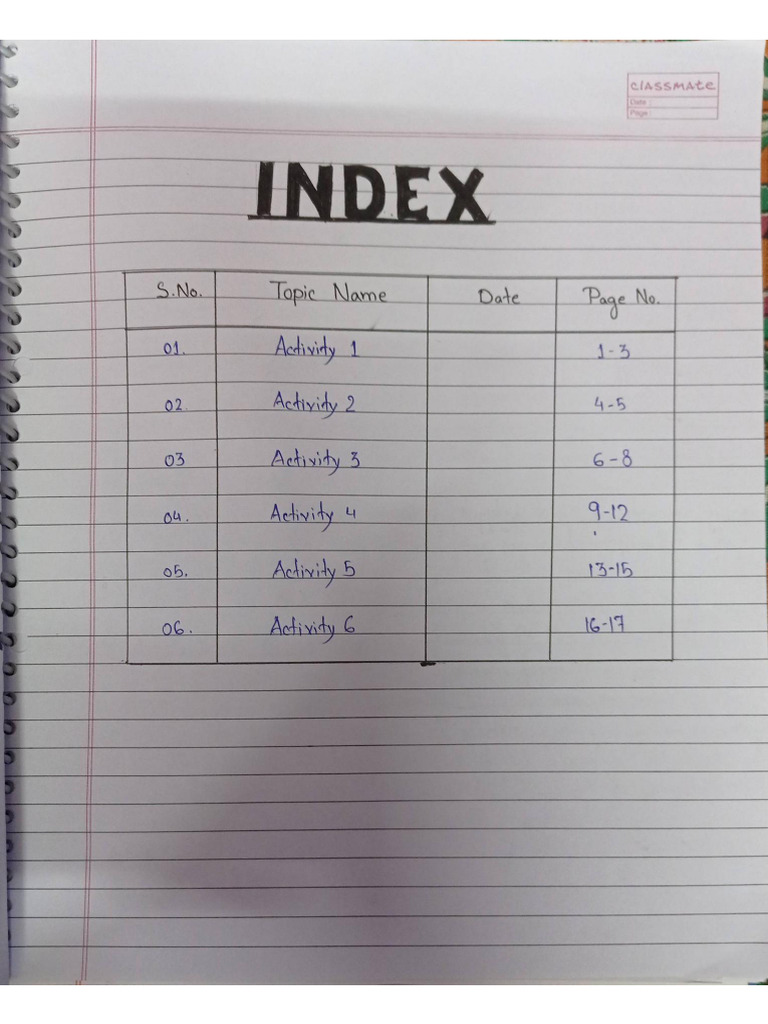 classmate
Date :
Page :
INDEX
S.No. Topic Name Date Page No.
01. Activity 1 1-3
02. Activity 2 4-5
03 Activity 3 6-8
04. Activity 4 9-12
05. Activity 5 13-15
06. Activity 6 16-17